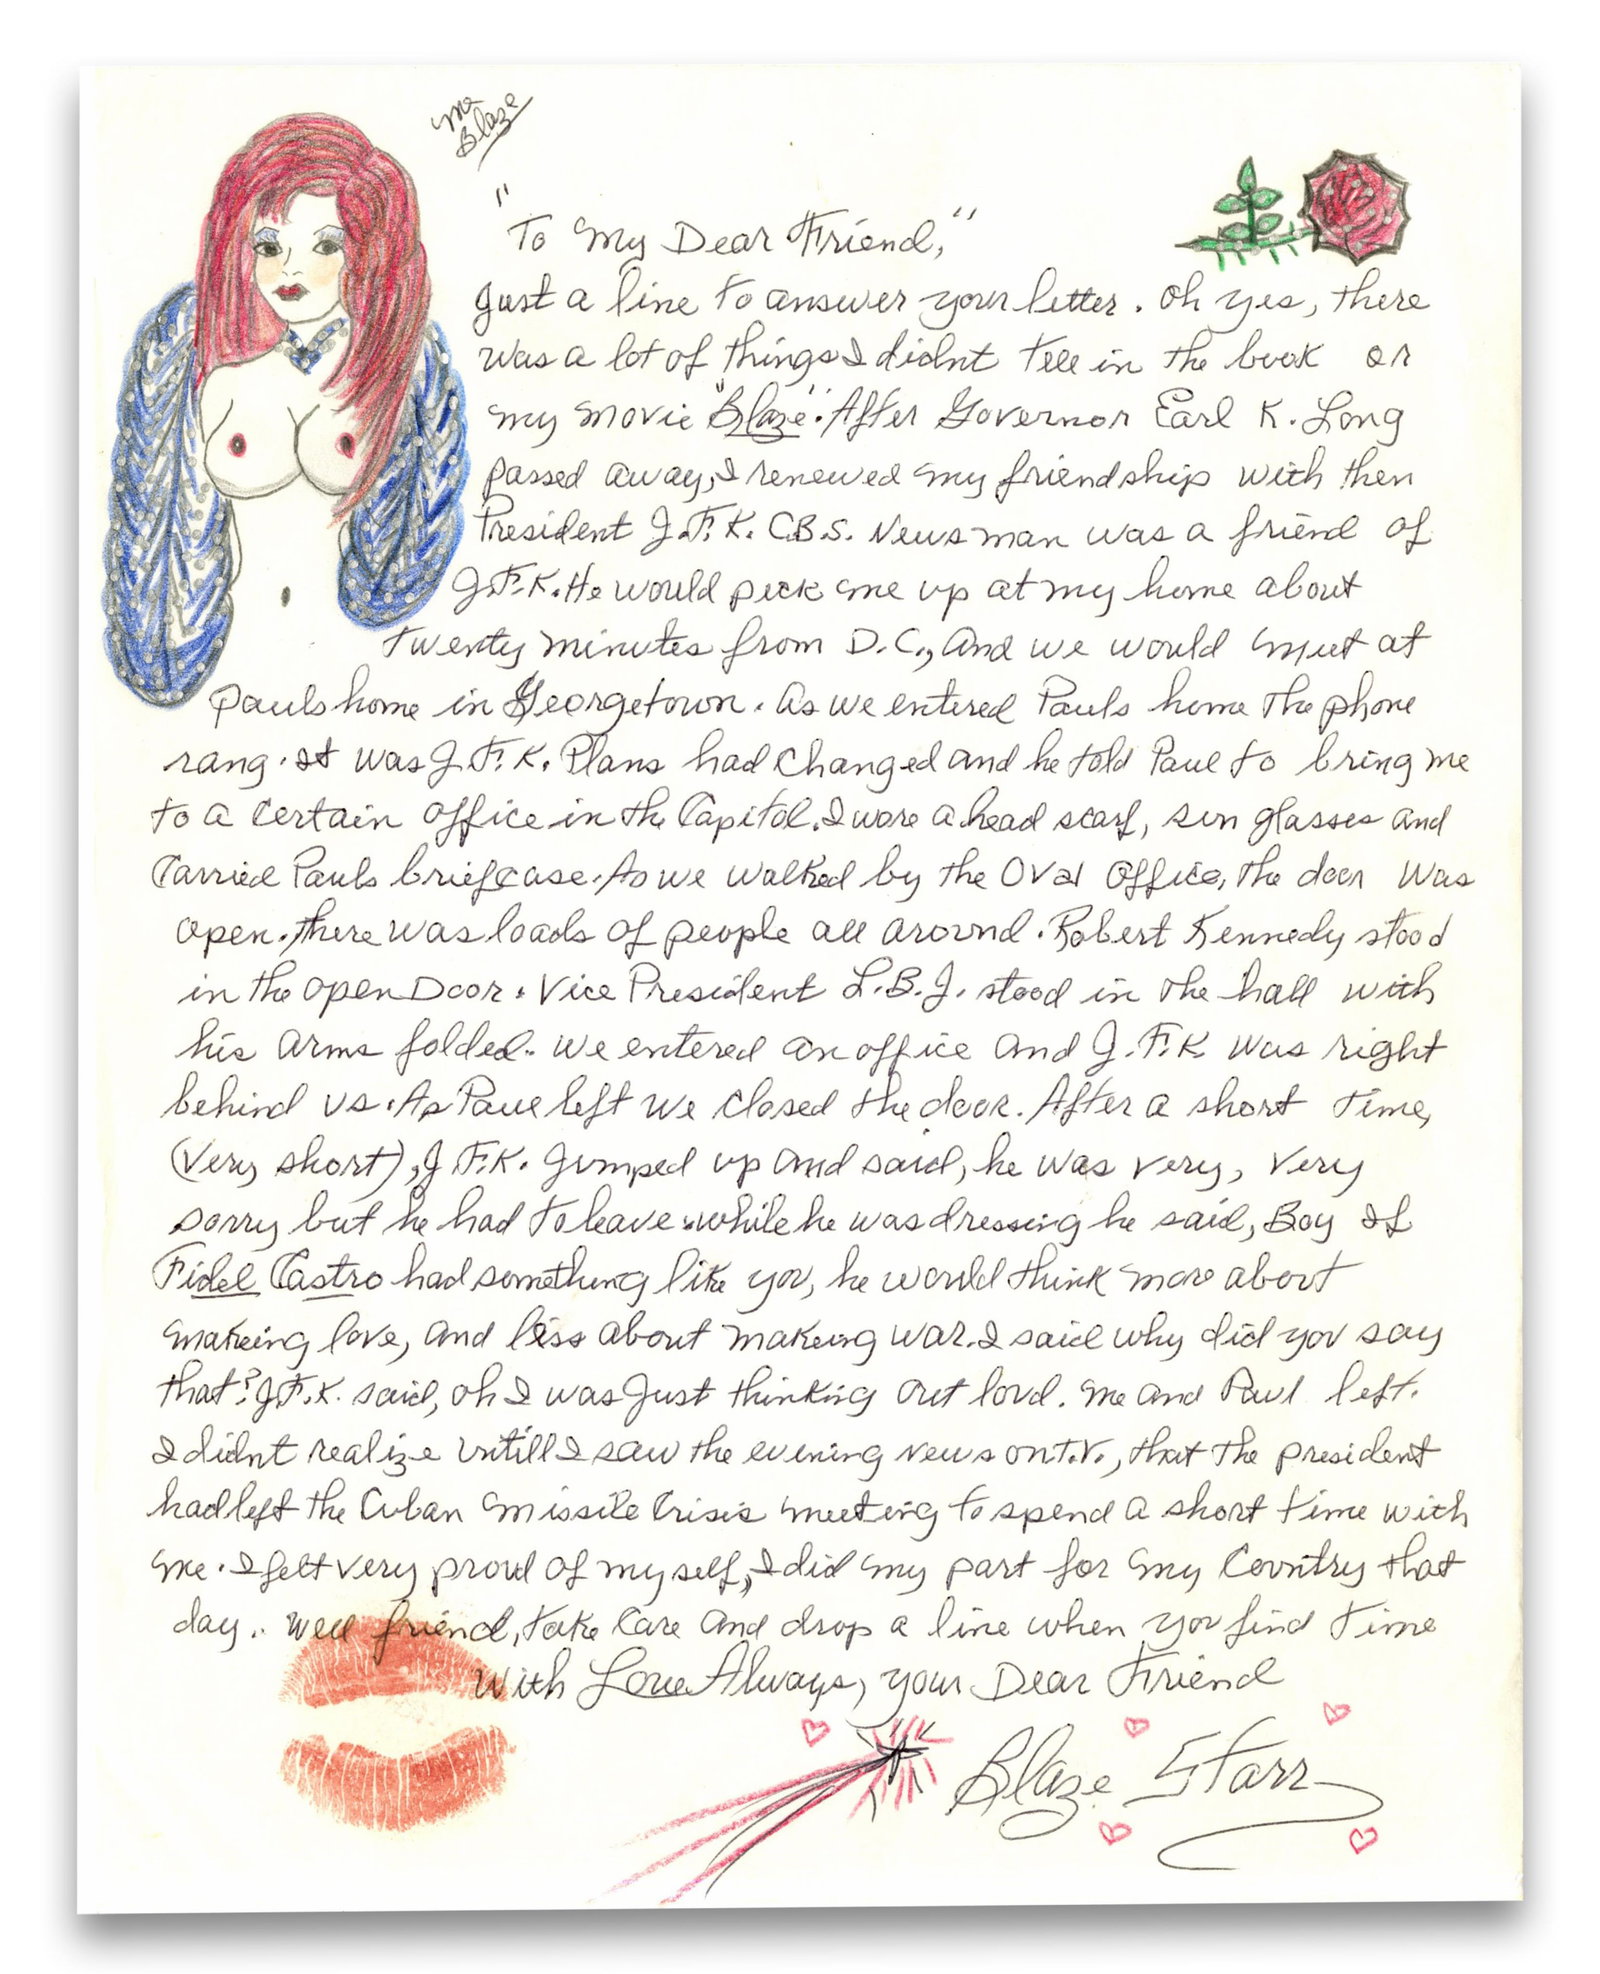 Me
Blaze
"To My Dear Friend,"
Just a line to answer your letter. Oh yes, there
was a lot of things I didnt tell in the book or
my movie "Blaze". After Governor Earl K. Long
passed away, I renewed my friendship with then
President J.F.K. C.B.S. Newsman was a friend of
J.F.K. He would pick me up at my home about
twenty minutes from D.C., and we would meet at
Pauls home in Georgetown. As we entered Pauls home the phone
rang. It was J.F.K. Plans had changed and he told Paul to bring me
to a certain office in the Capitol. I wore a head scarf, sun glasses and
carried Pauls briefcase. As we walked by the Oval Office, the door was
open. there was loads of people all around. Robert Kennedy stood
in the open Door. Vice President L.B.J. stood in the hall with
his arms folded.. we entered an office and J.F.K. was right
behind us. As Paul left we closed the door. After a short time,
(very short), J.F.K. jumped up and said, he was very, very
sorry but he had to leave. while he was dressing he said, Boy If
Fidel Castro had something like you, he would think more about
making love, and less about making war. I said why did you say
that? J.F.K. said, oh I was just thinking out loud. me and Paul left.
I didnt realize untill I saw the evening news on T.V., that the president
had left the Cuban Missile Crisis meeting to spend a short time with
me. I felt very proud of my self, I did my part for my Country that
day.. well friend, take care and drop a line when you find time
With Love Always, your Dear Friend
Blaze Starr